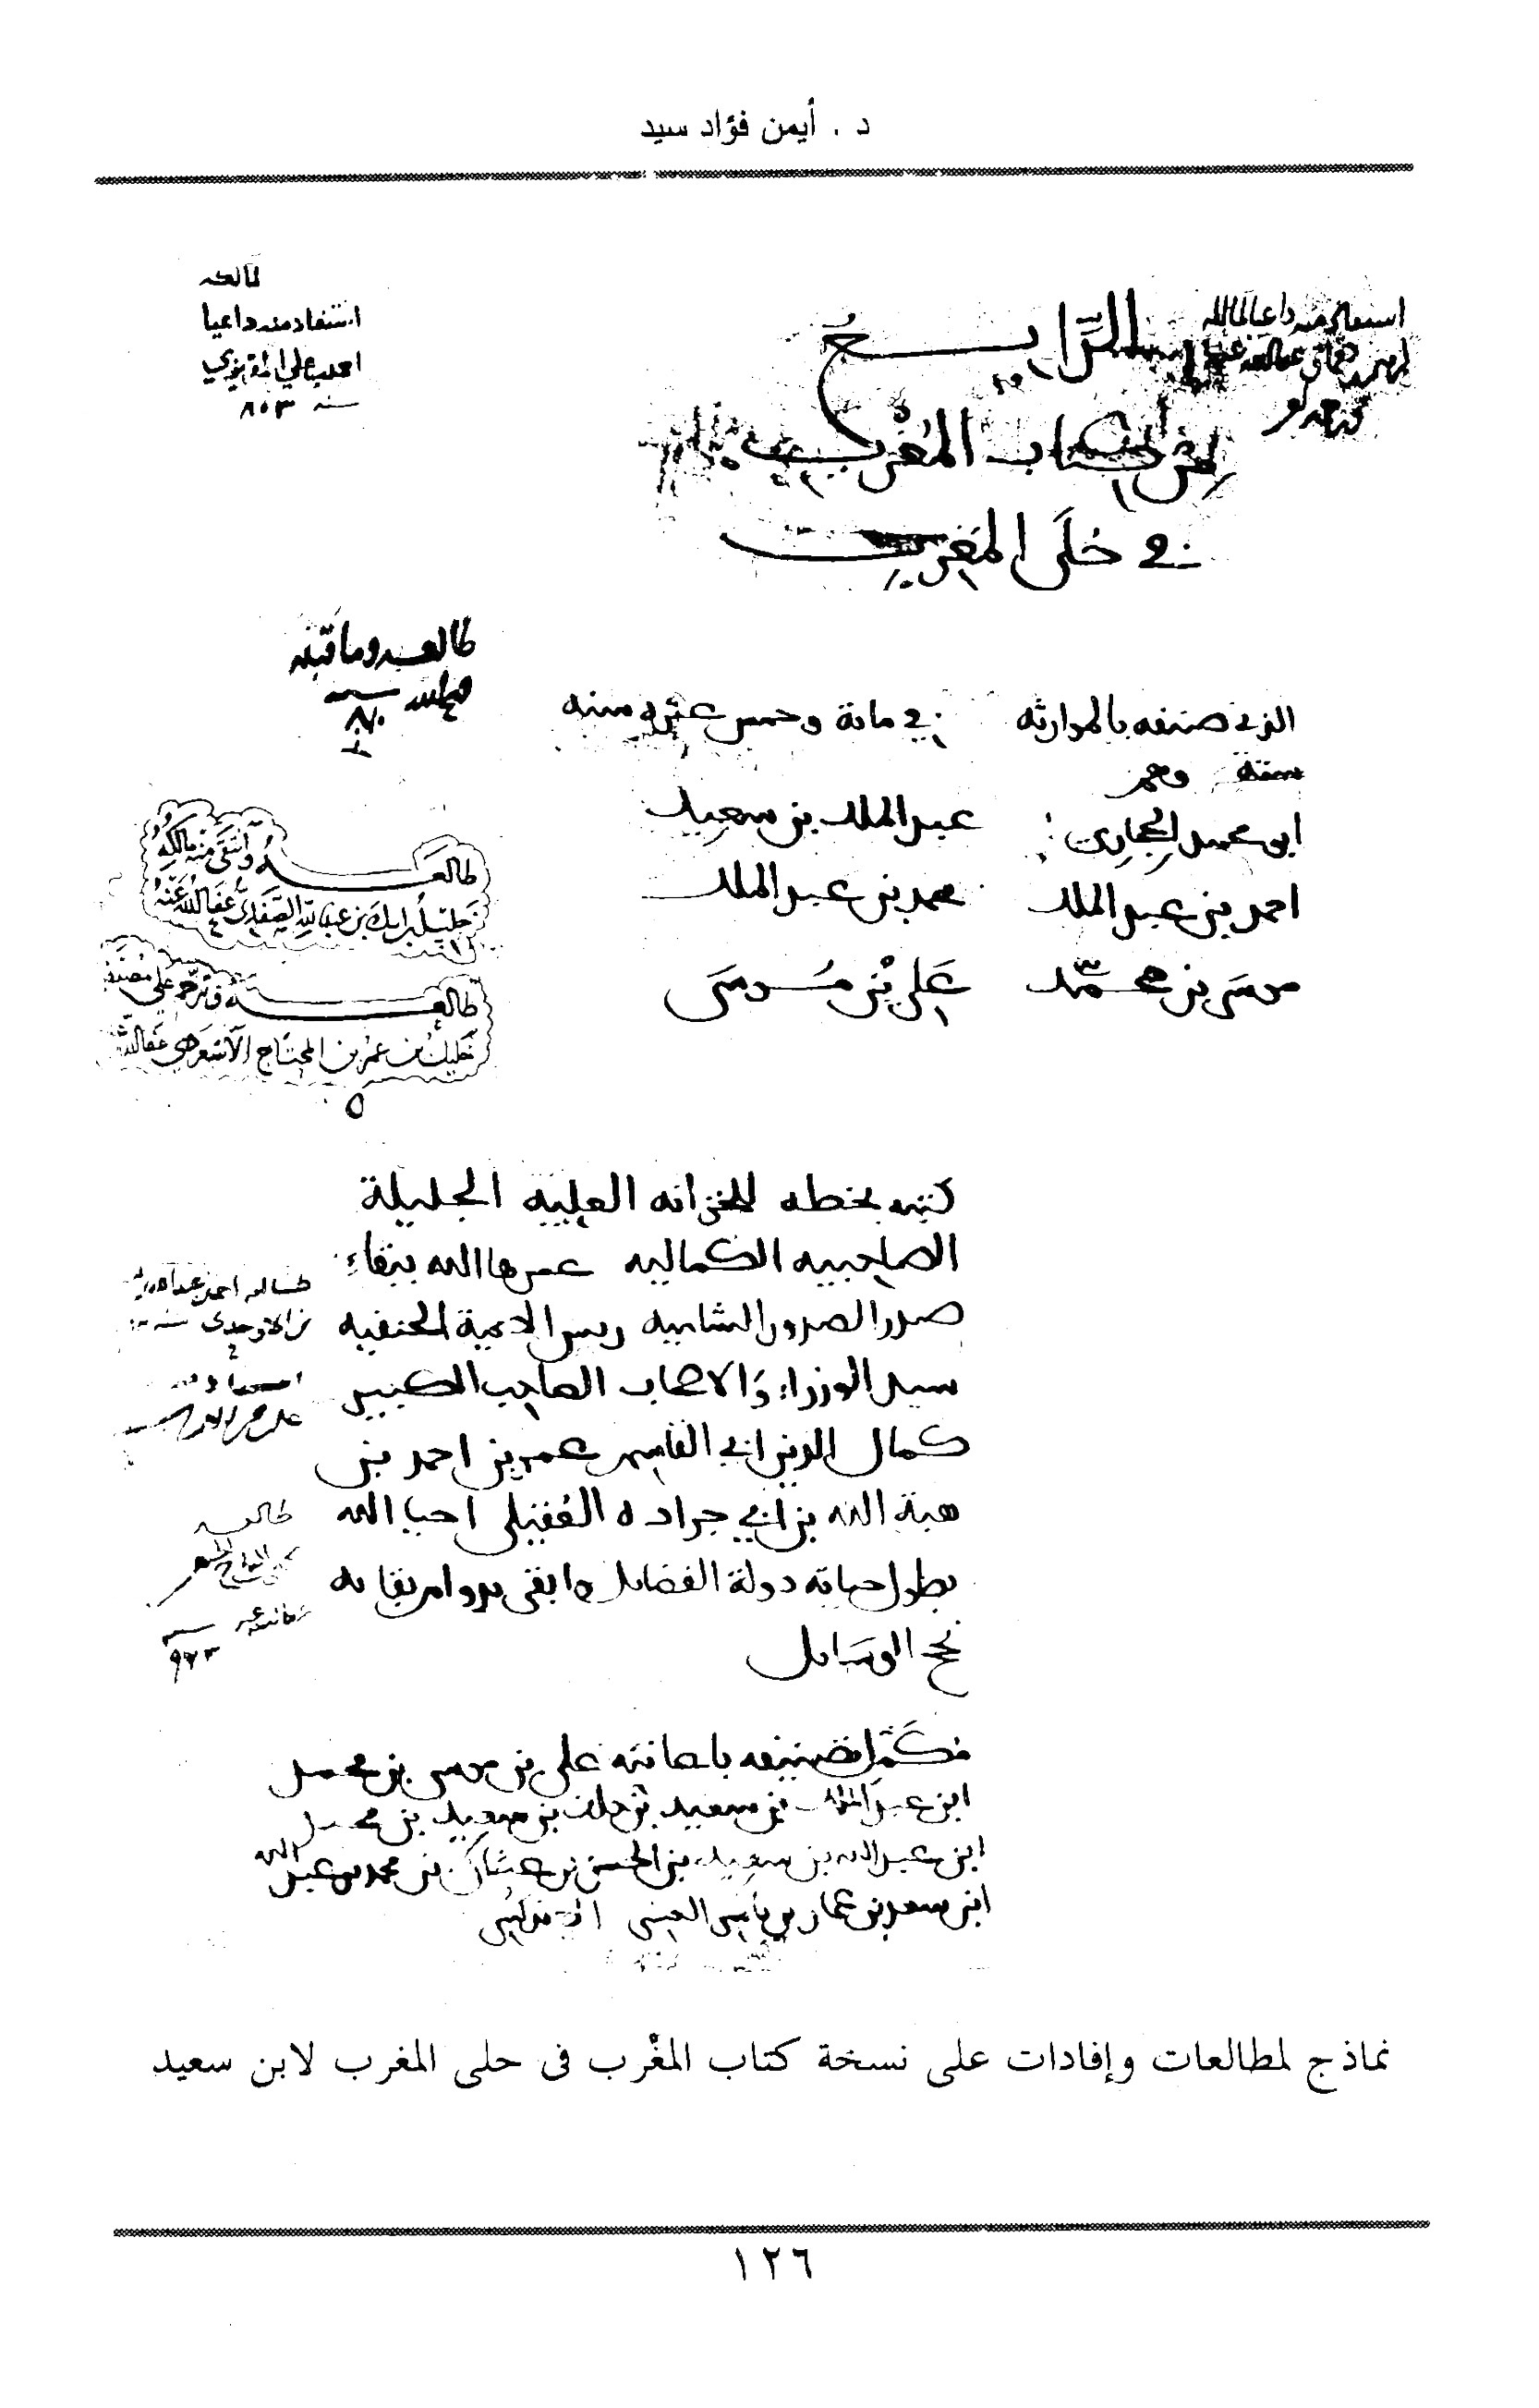 د . أيمن فؤاد سيد
استفاد منه داعيا لمالكه
ابراهيم بن دقماق عفا الله عنه
السفر الرابع
من كتاب المُغْرب
في حُلَى المَغرب
طالعه
استفاد منه داعيا
احمد بن علي المقريزي
سنة ٨٠٣
طالعه وما قبله
الذي صنفه بالموارثه في مائة وخمس عشرة سنه
ستة وهم
ابو محمد الحجاري : عبد الملك بن سعيد
احمد بن عبد الملك محمد بن عبد الملك
موسى بن محمّد عَلي بْن مُوسَى
طالعَهُ وانتقى منه مالكه
خليل بن ايبك بن عبد الله الصفدي عفا الله عنه
طالعه وترحم على مصنفه
خليل بن عمر بن المحتاج الأسعردي عفا الله عنه
كتبه بخطه للخزانه العليه الجليلة
الصاحبيه الكماليه عمرها الله ببقاء
صدر الصدور الشاميه رئيس الايمة الحنفيه
سيد الوزراء والاصحاب الصاحب الكبير
كمال الدين ابي القاسم عمر بن احمد بن
هبة الله بن ابي جراده العُقيلي احيا الله
بطول حياته دولة الفضايل وابقى بدوام بقايه
نجح الوسَايل
طالعه احمد بن عبد الله
بن الاوحدي سنة
طالعه
٩٧٣
مكَمّل تصنيفه باعانته علي بن موسى بن محمد
ابن عبد الملك بن سعيد بن خلف بن سعيد بن محمد
ابن عبد الله بن سعيد بن الحسن بن عثمان بن محمد بن عبد الله
ابن سعد بن عمار بن ياسر العنسي الاندلسي
نماذج لمطالعات وإفادات على نسخة كتاب المغْرب فى حلى المغرب لابن سعيد
١٢٦